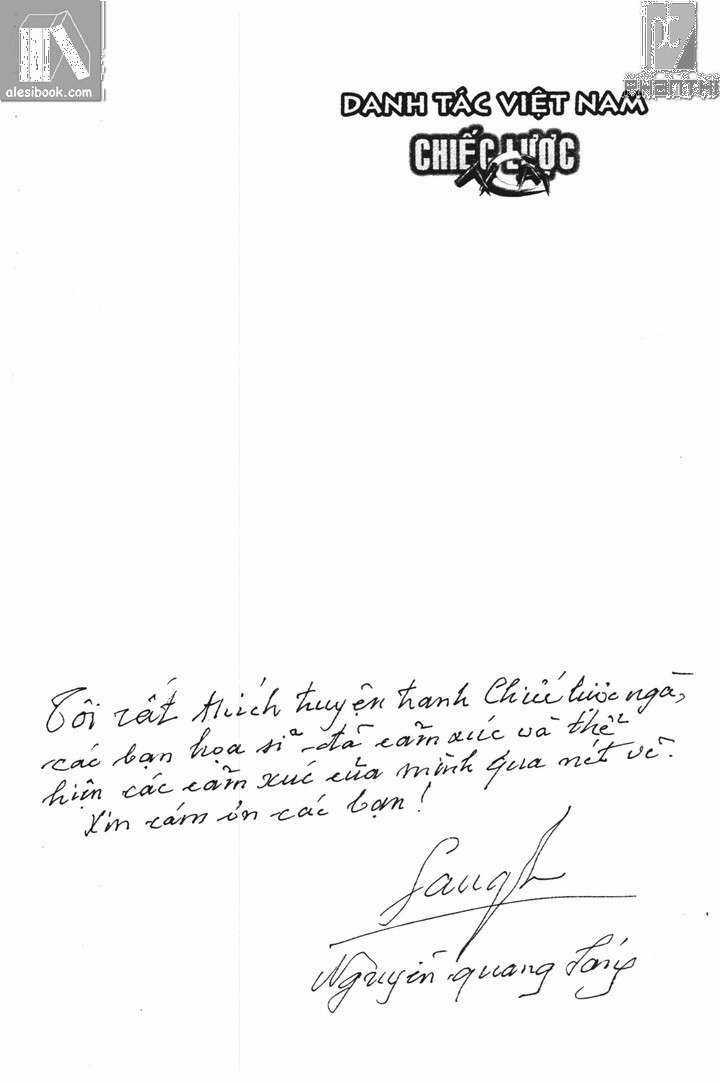 alesibook.com
DANH TÁC VIỆT NAM
CHIẾC LƯỢC
NGÀ
Tôi rất thích truyện tranh Chiếc lược ngà,
các bạn họa sĩ đã cảm xúc và thể
hiện các cảm xúc của mình qua nét vẽ.
Xin cám ơn các bạn!
Nguyễn quang Sáng